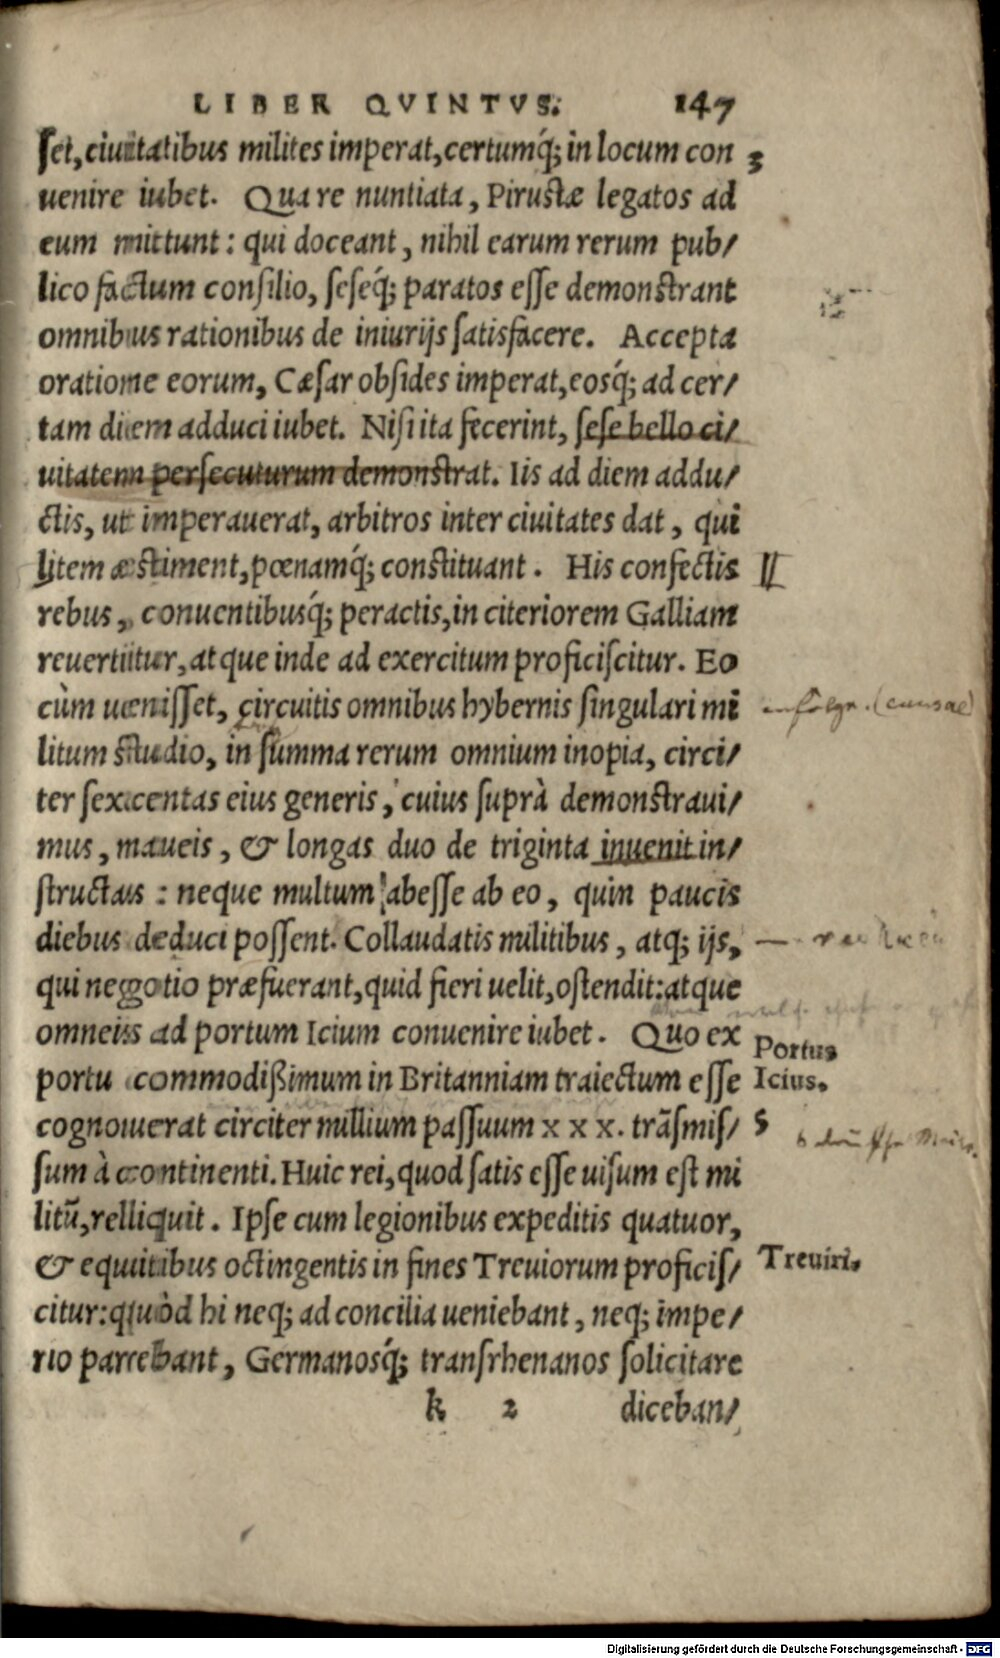 LIBER QVINTVS. 147
set, ciuitatibus milites imperat, certumq́; in locum con 3
uenire iubet. Qua re nuntiata, Pirustæ legatos ad
eum mittunt: qui doceant, nihil earum rerum pub/
lico factum consilio, seseq́; paratos esse demonstrant
omnibus rationibus de iniurijs satisfacere. Accepta
oratione eorum, Cæsar obsides imperat, eosq́; ad cer/
tam diem adduci iubet. Nisi ita fecerint, sese bello ci/
uitatem persecuturum demonstrat. Iis ad diem addu/
ctis, ut imperauerat, arbitros inter ciuitates dat, qui
litem æstiment, pœnamq́; constituant. His confectis II
rebus, conuentibusq́; peractis, in citeriorem Galliam
reuertitur, atque inde ad exercitum proficiscitur. Eo
cùm uenisset, circuitis omnibus hybernis singulari mi
litum studio, in summa rerum omnium inopia, circi/
ter sexcentas eius generis, cuius suprà demonstraui/
mus, naueis, & longas duo de triginta inuenit in/
structas: neque multum abesse ab eo, quin paucis
diebus deduci possent. Collaudatis militibus, atq; ijs,
qui negotio præfuerant, quid fieri uelit, ostendit: atque
omneis ad portum Icium conuenire iubet. Quo ex
Portus
portu commodißimum in Britanniam traiectum esse
Icius.
cognouerat circiter millium passuum x x x. trãsmis/ 5
sum à continenti. Huic rei, quod satis esse uisum est mi
litũ, relliquit. Ipse cum legionibus expeditis quatuor,
& equitibus octingentis in fines Treuiorum proficis/
Treuiri.
citur: quòd hi neq; ad concilia ueniebant, neq; impe/
rio parebant, Germanosq́; transrhenanos solicitare
k 2 diceban/
Digitalisierung gefördert durch die Deutsche Forschungsgemeinschaft - DFG